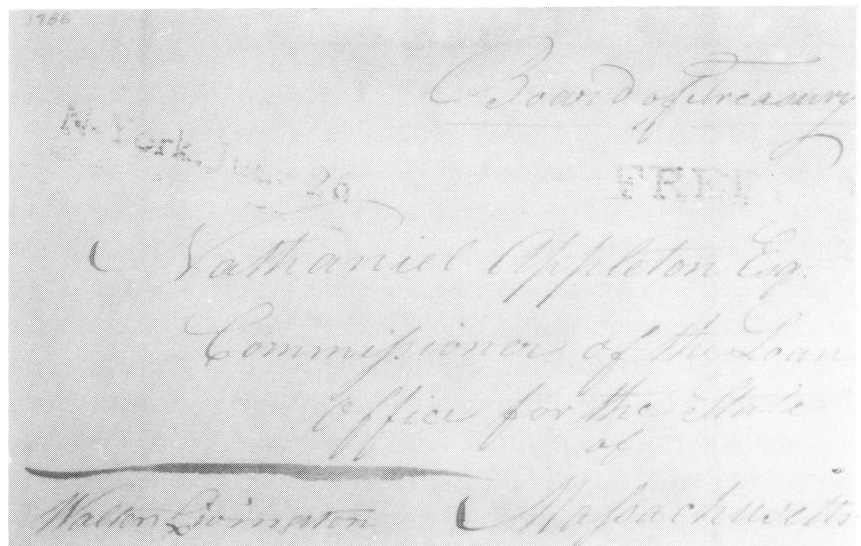 1786
Board of Treasury
N-York, 20
FREE
Nathaniel Appleton Esq.
Commissioner of the Loan
Office for the State
of
Massachusetts
Walter Livingston